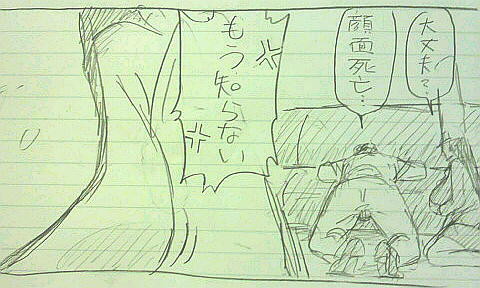 大丈夫?
顔面死亡…
もう知らない